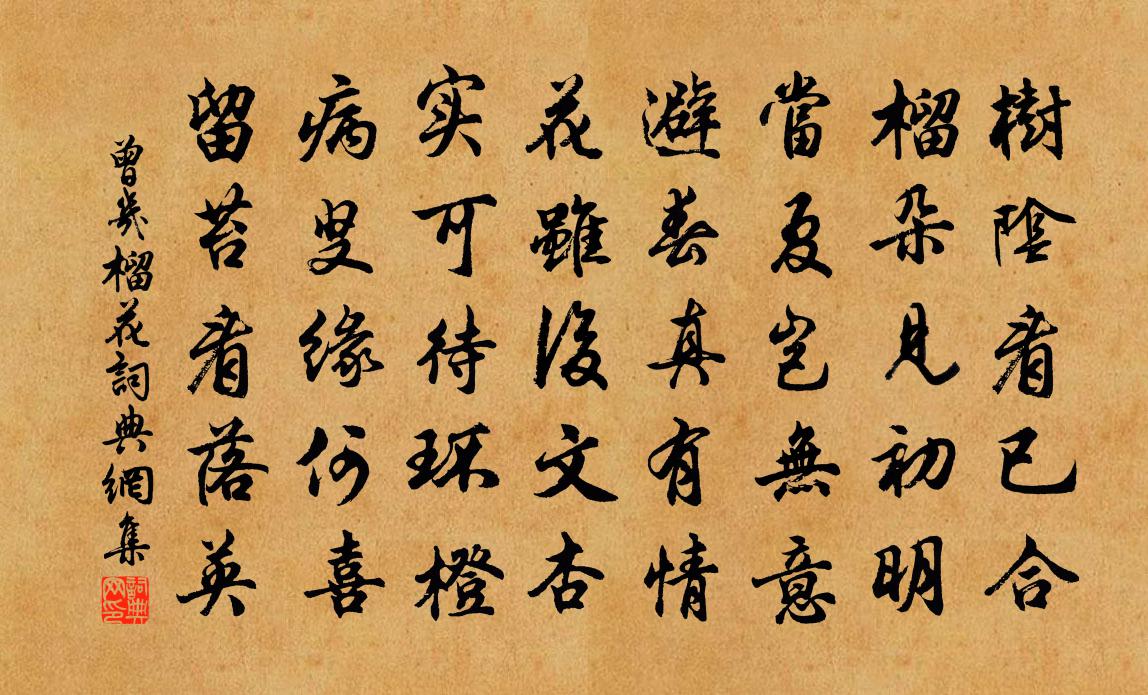 樹陰看已合
榴朵見初明
當夏豈無意
避春真有情
花雖後文杏
实可待环橙
病叟緣何喜
留苔看落英
曾幾榴花詞典網集
詞典网印